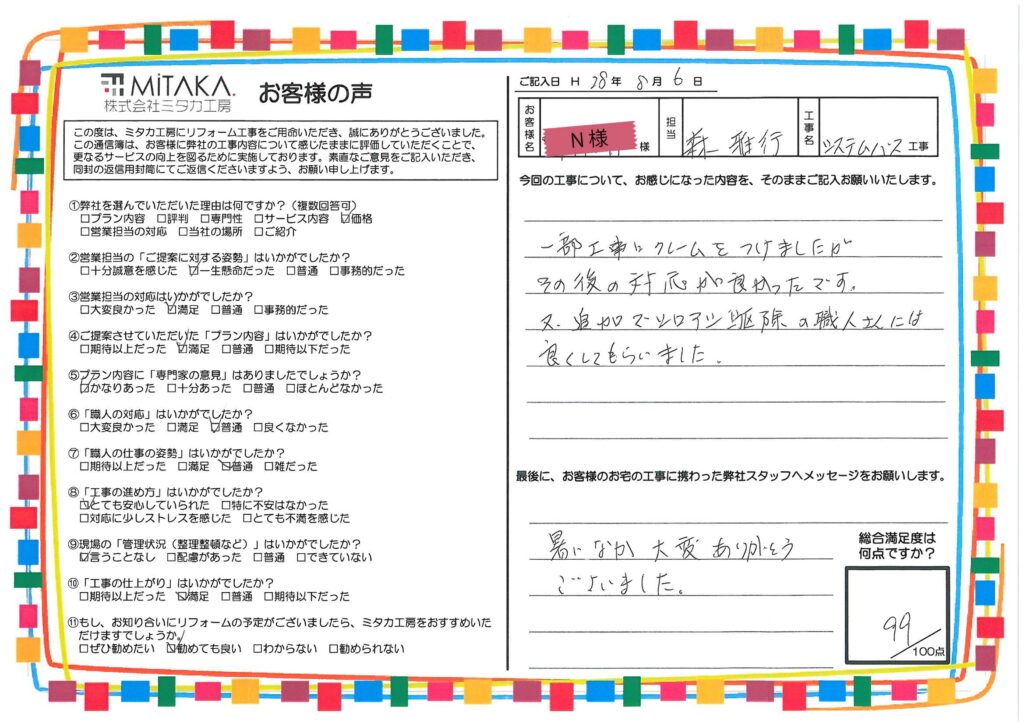 MiTAKA.
株式会社ミタカ工房
お客様の声
この度は、ミタカ工房にリフォーム工事をご用命いただき、誠にありがとうございました。
この通信簿は、お客様に弊社の工事内容について感じたままに評価していただくことで、
更なるサービスの向上を図るために実施しております。素直なご意見をご記入いただき、
同封の返信用封筒にてご返信くださいますよう、お願い申し上げます。
①弊社を選んでいただいた理由は何ですか?(複数回答可)
□プラン内容 □評判 □専門性 □サービス内容 ☑価格
□営業担当の対応 □当社の場所 □ご紹介
②営業担当の「ご提案に対する姿勢」はいかがでしたか?
□十分誠意を感じた ☑一生懸命だった □普通 □事務的だった
③営業担当の対応はいかがでしたか?
□大変良かった ☑満足 □普通 □事務的だった
④ご提案させていただいた「プラン内容」はいかがでしたか?
□期待以上だった ☑満足 □普通 □期待以下だった
⑤プラン内容に「専門家の意見」はありましたでしょうか?
☑かなりあった □十分あった □普通 □ほとんどなかった
⑥「職人の対応」はいかがでしたか?
□大変良かった □満足 ☑普通 □良くなかった
⑦「職人の仕事の姿勢」はいかがでしたか?
□期待以上だった □満足 ☑普通 □雑だった
⑧「工事の進め方」はいかがでしたか?
☑とても安心していられた □特に不安はなかった
□対応に少しストレスを感じた □とても不満を感じた
⑨現場の「管理状況(整理整頓など)」はいかがでしたか?
☑言うことなし □配慮があった □普通 □できていない
⑩「工事の仕上がり」はいかがでしたか?
□期待以上だった ☑満足 □普通 □期待以下だった
⑪もし、お知り合いにリフォームの予定がございましたら、ミタカ工房をおすすめいた
だけますでしょうか?
□ぜひ勧めたい ☑勧めても良い □わからない □勧められない
ご記入日 H 28年 8月 6日
お客様名 N様 様 担当 森 雅行 工事名 システムバス 工事
今回の工事について、お感じになった内容を、そのままご記入お願いいたします。
一部工事にクレームをつけましたが
その後の対応が良かったです。
又、追加でシロアリ駆除の職人さんには
良くしてもらいました。
最後に、お客様のお宅の工事に携わった弊社スタッフへメッセージをお願いします。
暑いなか 大変ありがとう
ございました。
総合満足度は
何点ですか?
99
100点